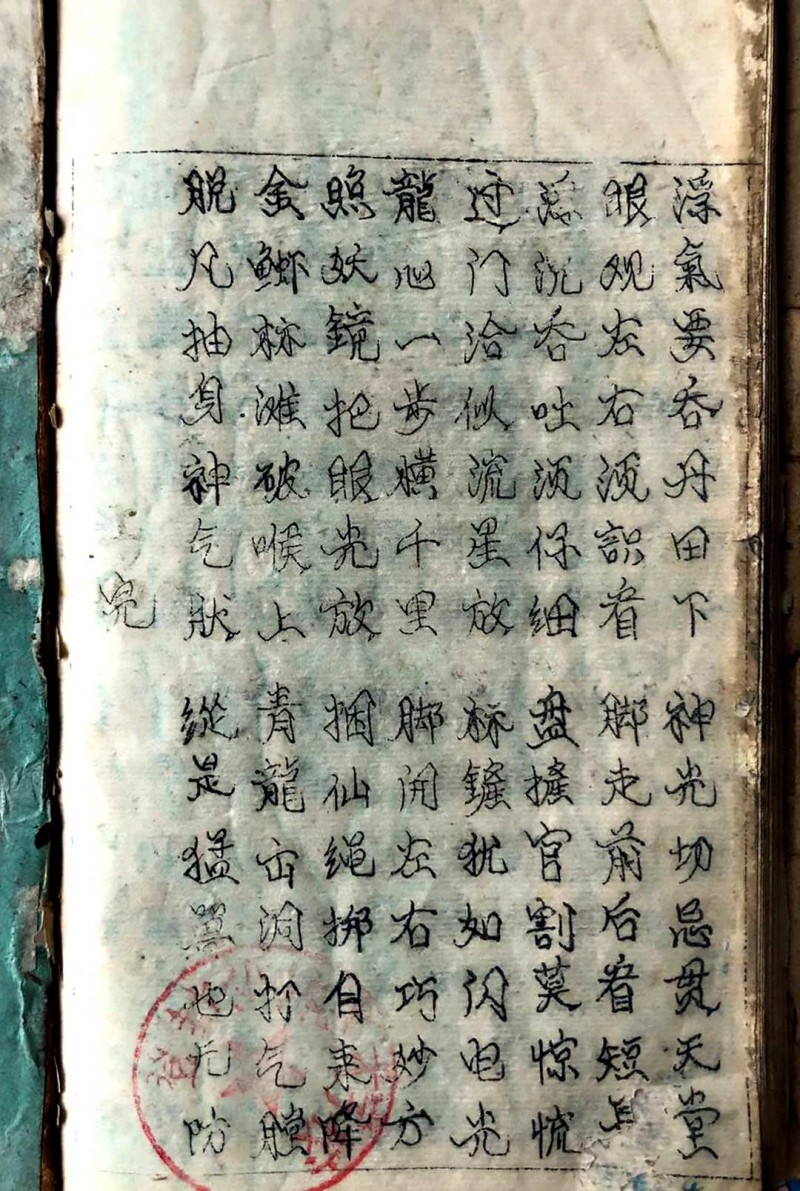 浮氣要吞丹田下 神光切忌贯天堂
眼观左右须識看 脚走前后看短
沉吞吐须仔细 盘官割莫惊慌
过门洽似流星放 标鏟犹如闪电光
龍心一步横千里 脚闲左右巧妙方
照妖镜把眼光放 捆仙绳挷自来降
金鲫标滩破喉上 青龍出洞打气膛
脱凡抽身神气狀 縱是猛也冇防
完